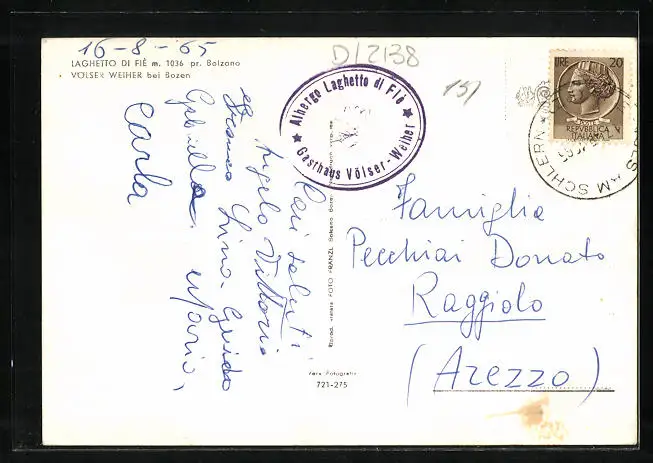 16-8-65
LAGHETTO DI FIÈ m. 1036 pr. Bolzano
VÖLSER WEIHER bei Bozen
D/2138
151
Albergo Laghetto di Fiè
Gasthaus Völser-Weiher
LIRE 20
REPVBBLICA
ITALIANA
AM SCHLERN
Cari saluti
Angela Vittorio
Franco Luina Guido
Gabriella Mario,
Carla
FOTO FRANZL Bolzano
Vera Fotografia
721-275
Famiglia
Pecchiai Donato
Raggiolo
(Arezzo)